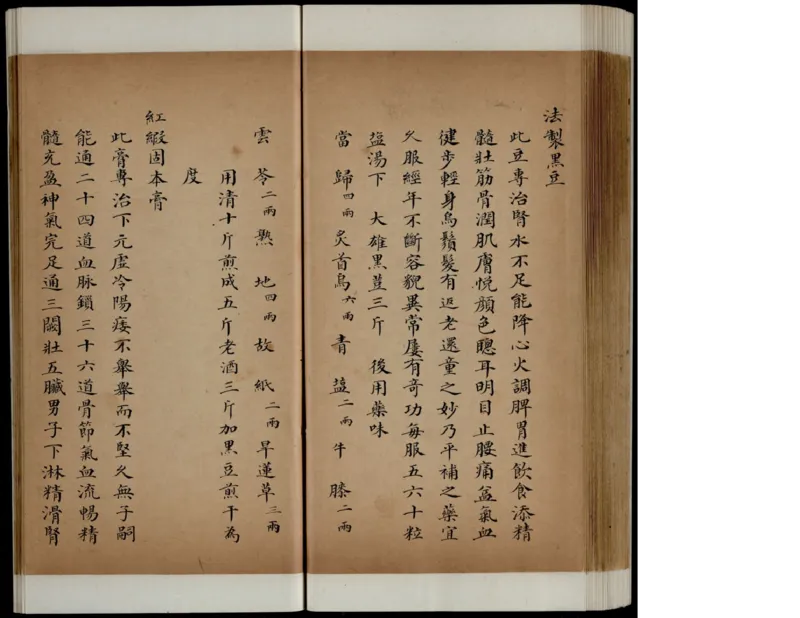 法製黑豆
此豆專治腎水不足能降心火調脾胃進飲食添精
髓壯筋骨潤肌膚悅顏色聰耳明目止腰痛益氣血
健步輕身烏鬚髮有返老還童之妙乃平補之藥宜
久服經年不斷容貌異常屢有奇功每服五六十粒
盐湯下 大雄黑荳三斤 後用藥味
當歸四兩 炙首烏六兩 青盐二兩 牛膝二兩
雲苓二兩 熟地四兩 故紙二兩 旱蓮草三兩
用清十斤煎成五斤老酒三斤加黑豆煎干為
度
紅緞固本膏
此膏專治下元虛冷陽痿不舉舉而不堅久無子嗣
能通二十四道血脉鎖三十六道骨節氣血流暢精
髓充盈神氣完足通三關壯五臟男子下淋精滑腎